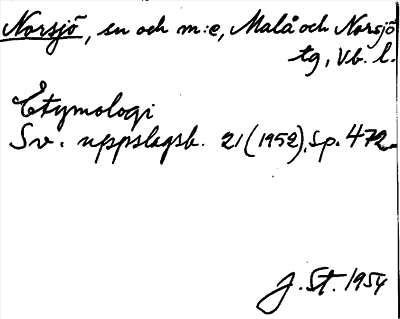 Norsjö, sn och m:e, Malå och Norsjö
tg, Vb. l.
Etymologi
Sv. uppslagsb. 21 (1952), sp. 472.
J. St. 1954